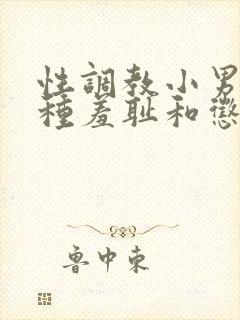 性調教小男
種羞耻和懲
鲁中東